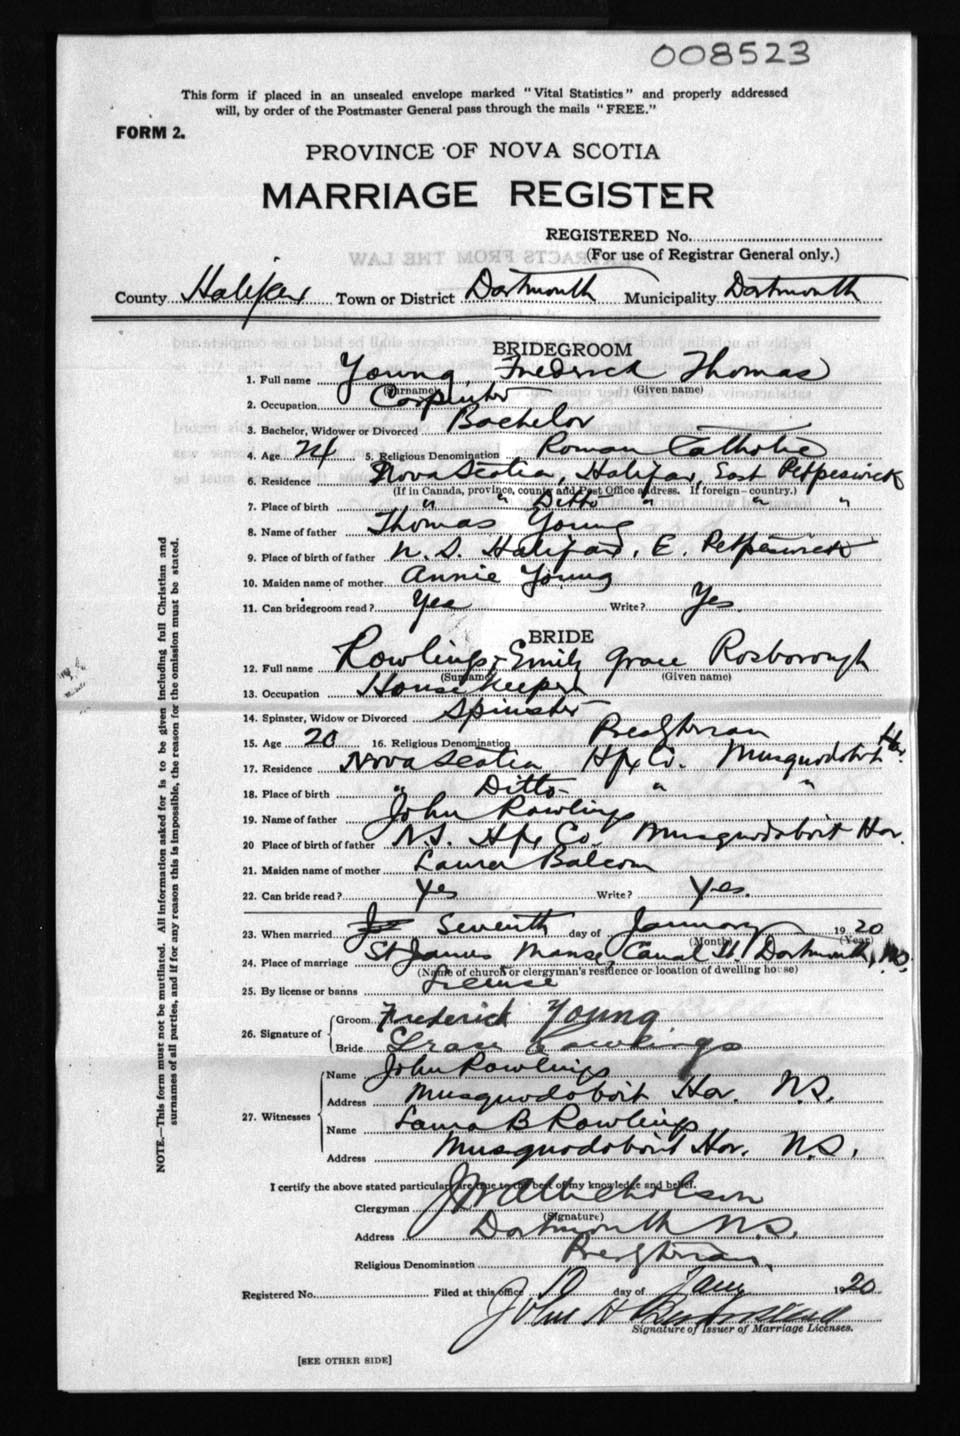 008523
This form if placed in an unsealed envelope marked "Vital Statistics" and properly addressed
will, by order of the Postmaster General pass through the mails "FREE."
FORM 2.
PROVINCE OF NOVA SCOTIA
MARRIAGE REGISTER
REGISTERED No.
(For use of Registrar General only.)
County Halifax Town or District Dartmouth Municipality Dartmouth
BRIDEGROOM
1. Full name Young, Frederick Thomas
(Surname) (Given name)
2. Occupation Carpinter
3. Bachelor, Widower or Divorced Bachelor
4. Age 24 5. Religious Denomination Roman Catholic
6. Residence Nova Scotia, Halifax, East Petpeswick
(If in Canada, province, county and Post Office address. If foreign—country.)
7. Place of birth " " Ditto " " "
8. Name of father Thomas Young
9. Place of birth of father N. S. Halifax, E. Petpeswick
10. Maiden name of mother Annie Young
11. Can bridegroom read? Yes Write? Yes.
BRIDE
12. Full name Rowlings, Emily Grace Rosborough
(Surname) (Given name)
13. Occupation Housekeeper
14. Spinster, Widow or Divorced Spinster
15. Age 20 16. Religious Denomination Presbyterian
17. Residence Nova Scotia Hfx Co. Musquodoboit Har.
18. Place of birth " Ditto " "
19. Name of father John Rowlings
20 Place of birth of father N.S. Hfx Co. Musquodoboit Har.
21. Maiden name of mother Laura Balcom
22. Can bride read? Yes Write? Yes.
23. When married Seventh day of January 1920
(Month) (Year)
24. Place of marriage St James Manse, Canal St. Dartmouth, N.S.
(Name of church or clergyman's residence or location of dwelling house)
25. By license or banns License
26. Signature of Groom Frederick Young
Bride Grace Rowlings
27. Witnesses Name John Rowlings
Address Musquodoboit Har. N.S.
Name Laura B Rowlings
Address Musquodoboit Har. N.S.
I certify the above stated particulars are true to the best of my knowledge and belief.
Clergyman Nicholson
(Signature)
Address Dartmouth N.S.
Religious Denomination Presbyterian
Registered No. Filed at this office 10 day of Jany 1920
John H
Signature of Issuer of Marriage Licenses.
[SEE OTHER SIDE]
NOTE.—This form must not be mutilated. All information asked for is to be given including full Christian and
surnames of all parties, and if for any reason this is impossible, the reason for the omission must be stated.